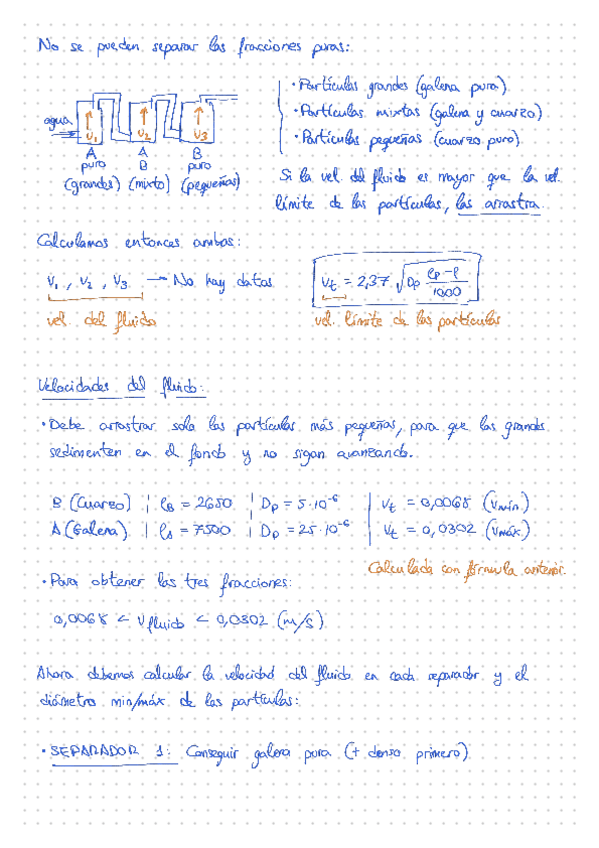 No se pueden separar las fracciones puras:
• Partículas grandes (galena pura)
• Partículas mixtas (galena y cuarzo)
• Partículas pequeñas (cuarzo puro)
agua
V₁ V₂ V₃
A A B
puro B puro
(grandes) (mixto) (pequeñas)
Si la vel. del fluido es mayor que la vel.
límite de las partículas, las arrastra
Calculamos entonces ambas:
V₁, V₂, V₃ → No hay datos
vel. del fluido
Vt = 2,37 √(Dp (ρp - ρ)/1000)
vel. límite de las partículas
Velocidades del fluido:
• Debe arrastrar solo las partículas más pequeñas, para que las grandes
sedimenten en el fondo y no sigan avanzando.
B (Cuarzo) | ρB = 2650 | Dp = 5·10⁻⁶ | Vt = 0,0068 (Vmín)
A (Galena) | ρA = 7500 | Dp = 25·10⁻⁶ | Vt = 0,0302 (Vmáx)
Calculada con fórmula anterior.
• Para obtener las tres fracciones:
0,0068 < Vfluido < 0,0302 (m/s)
Ahora debemos calcular la velocidad del fluido en cada separador y el
diámetro min/máx de las partículas:
• SEPARADOR 1: Conseguir galena pura (+ denso primero)